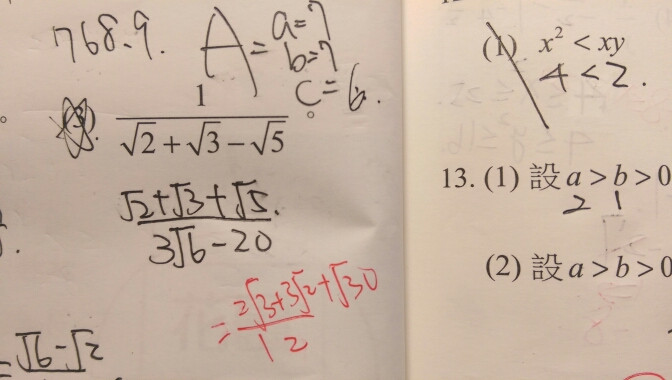 768.9. A = a=7
b=7
c=6.
(3). 1/(√2+√3−√5)。
(√2+√3+√5.)/(3√6−20)
=(2√3+3√2+√30)/12
√6−√2
(1) x² < xy
4 < 2.
13. (1) 設 a > b > 0
2 1
(2) 設 a > b > 0